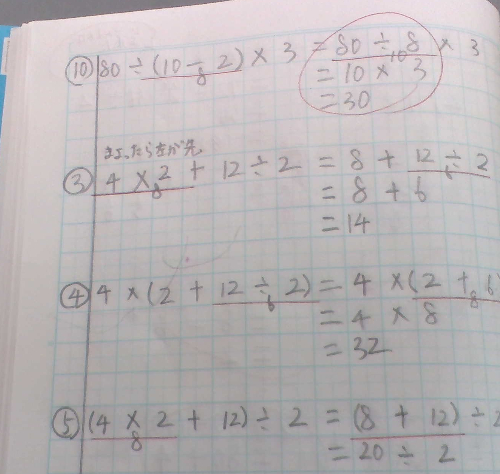 ⑩ 80 ÷ (10 - 2) × 3 = 80 ÷ 8 × 3
8 10
= 10 × 3
= 30
まよったら左が先
③ 4 × 2 + 12 ÷ 2 = 8 + 12 ÷ 2
8 6
= 8 + 6
= 14
④ 4 × (2 + 12 ÷ 2) = 4 × (2 + 6
6 8
= 4 × 8
= 32
⑤ (4 × 2 + 12) ÷ 2 = (8 + 12) ÷ 2
8
= 20 ÷ 2